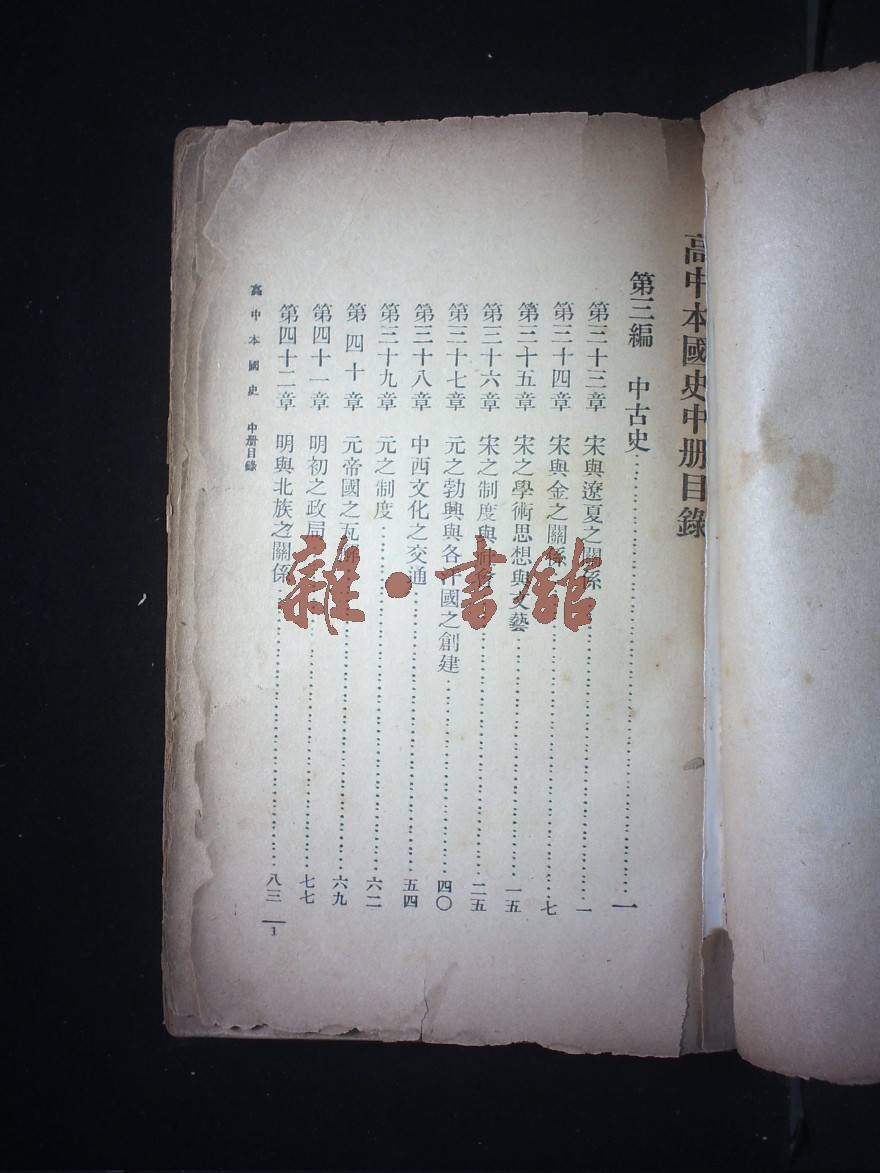 高中本國史中册目錄
第三編　中古史……一
第三十三章　宋與遼夏之關係……一
第三十四章　宋與金之關係……七
第三十五章　宋之學術思想與文藝……一五
第三十六章　宋之制度與社會……二五
第三十七章　元之勃興與各汗國之創建……四〇
第三十八章　中西文化之交通……五四
第三十九章　元之制度……六二
第四十章　元帝國之瓦解……六九
第四十一章　明初之政局……七七
第四十二章　明與北族之關係……八三
高中本國史　中册目錄
1
雜·書館